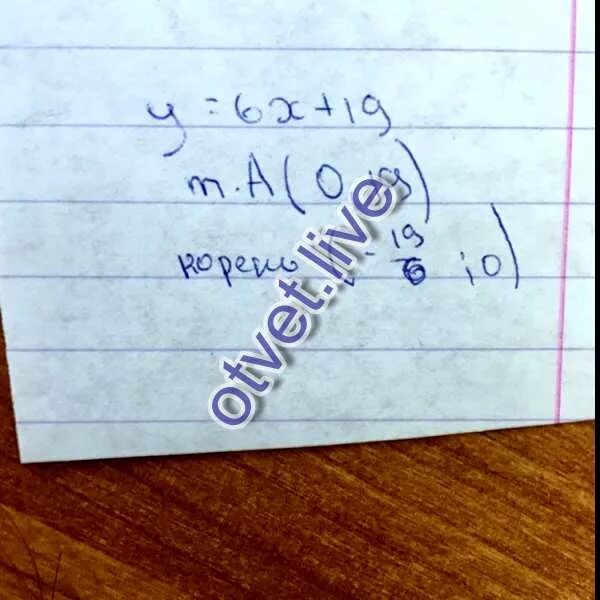 y = 6x + 19
т. A ( 0 ; 19 )
корень ( - 19/6 ; 0 )
otvet.live